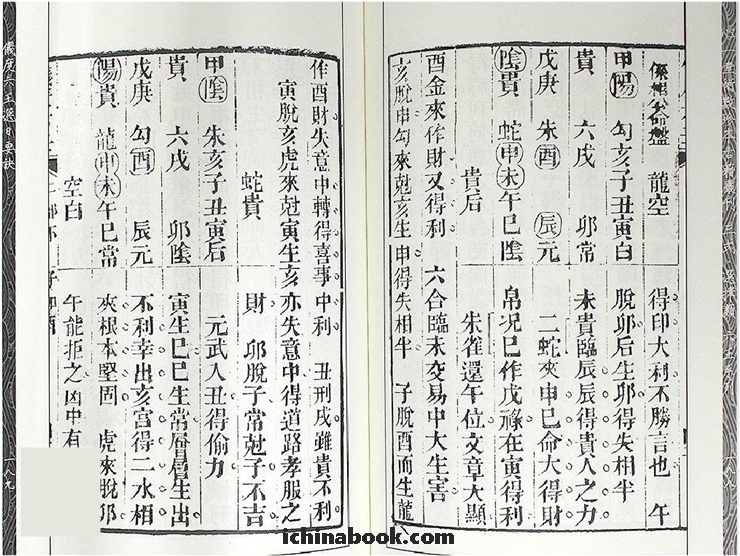 龍空 得印大利不勝言也 午
甲陽 勾亥子丑寅白 脫卯后生卯得失相半
貴 六戌 卯常 未貴臨辰辰得貴人之力
戊庚 朱酉 辰元 二蛇夾申巳命大得財
陰貴 蛇申未午巳陰 帛况巳作戊祿在寅得利
貴后 朱雀還午位文章大顯
酉金來作財又得利 六合臨未交易中大生害
亥脫申勾來尅亥生申得失相半 子脫酉而生龍
作酉財失意中轉得喜事中利 丑刑戌雖貴不利
寅脫亥虎來尅寅生亥亦失意中得道路孝服之
蛇貴 財 卯脫子常尅子不吉
甲陰 朱亥子丑寅后 元武入丑得偷力
貴 六戌 卯陰 寅生巳巳生常層層生出
戊庚 勾酉 辰元 不利幸出亥宮得二水相
陽貴 龍申未午巳常 夾根本堅固 虎來脫卯
空白 午能拒之凶中有
儀度六壬選日要訣
一八九
ichinabook.com